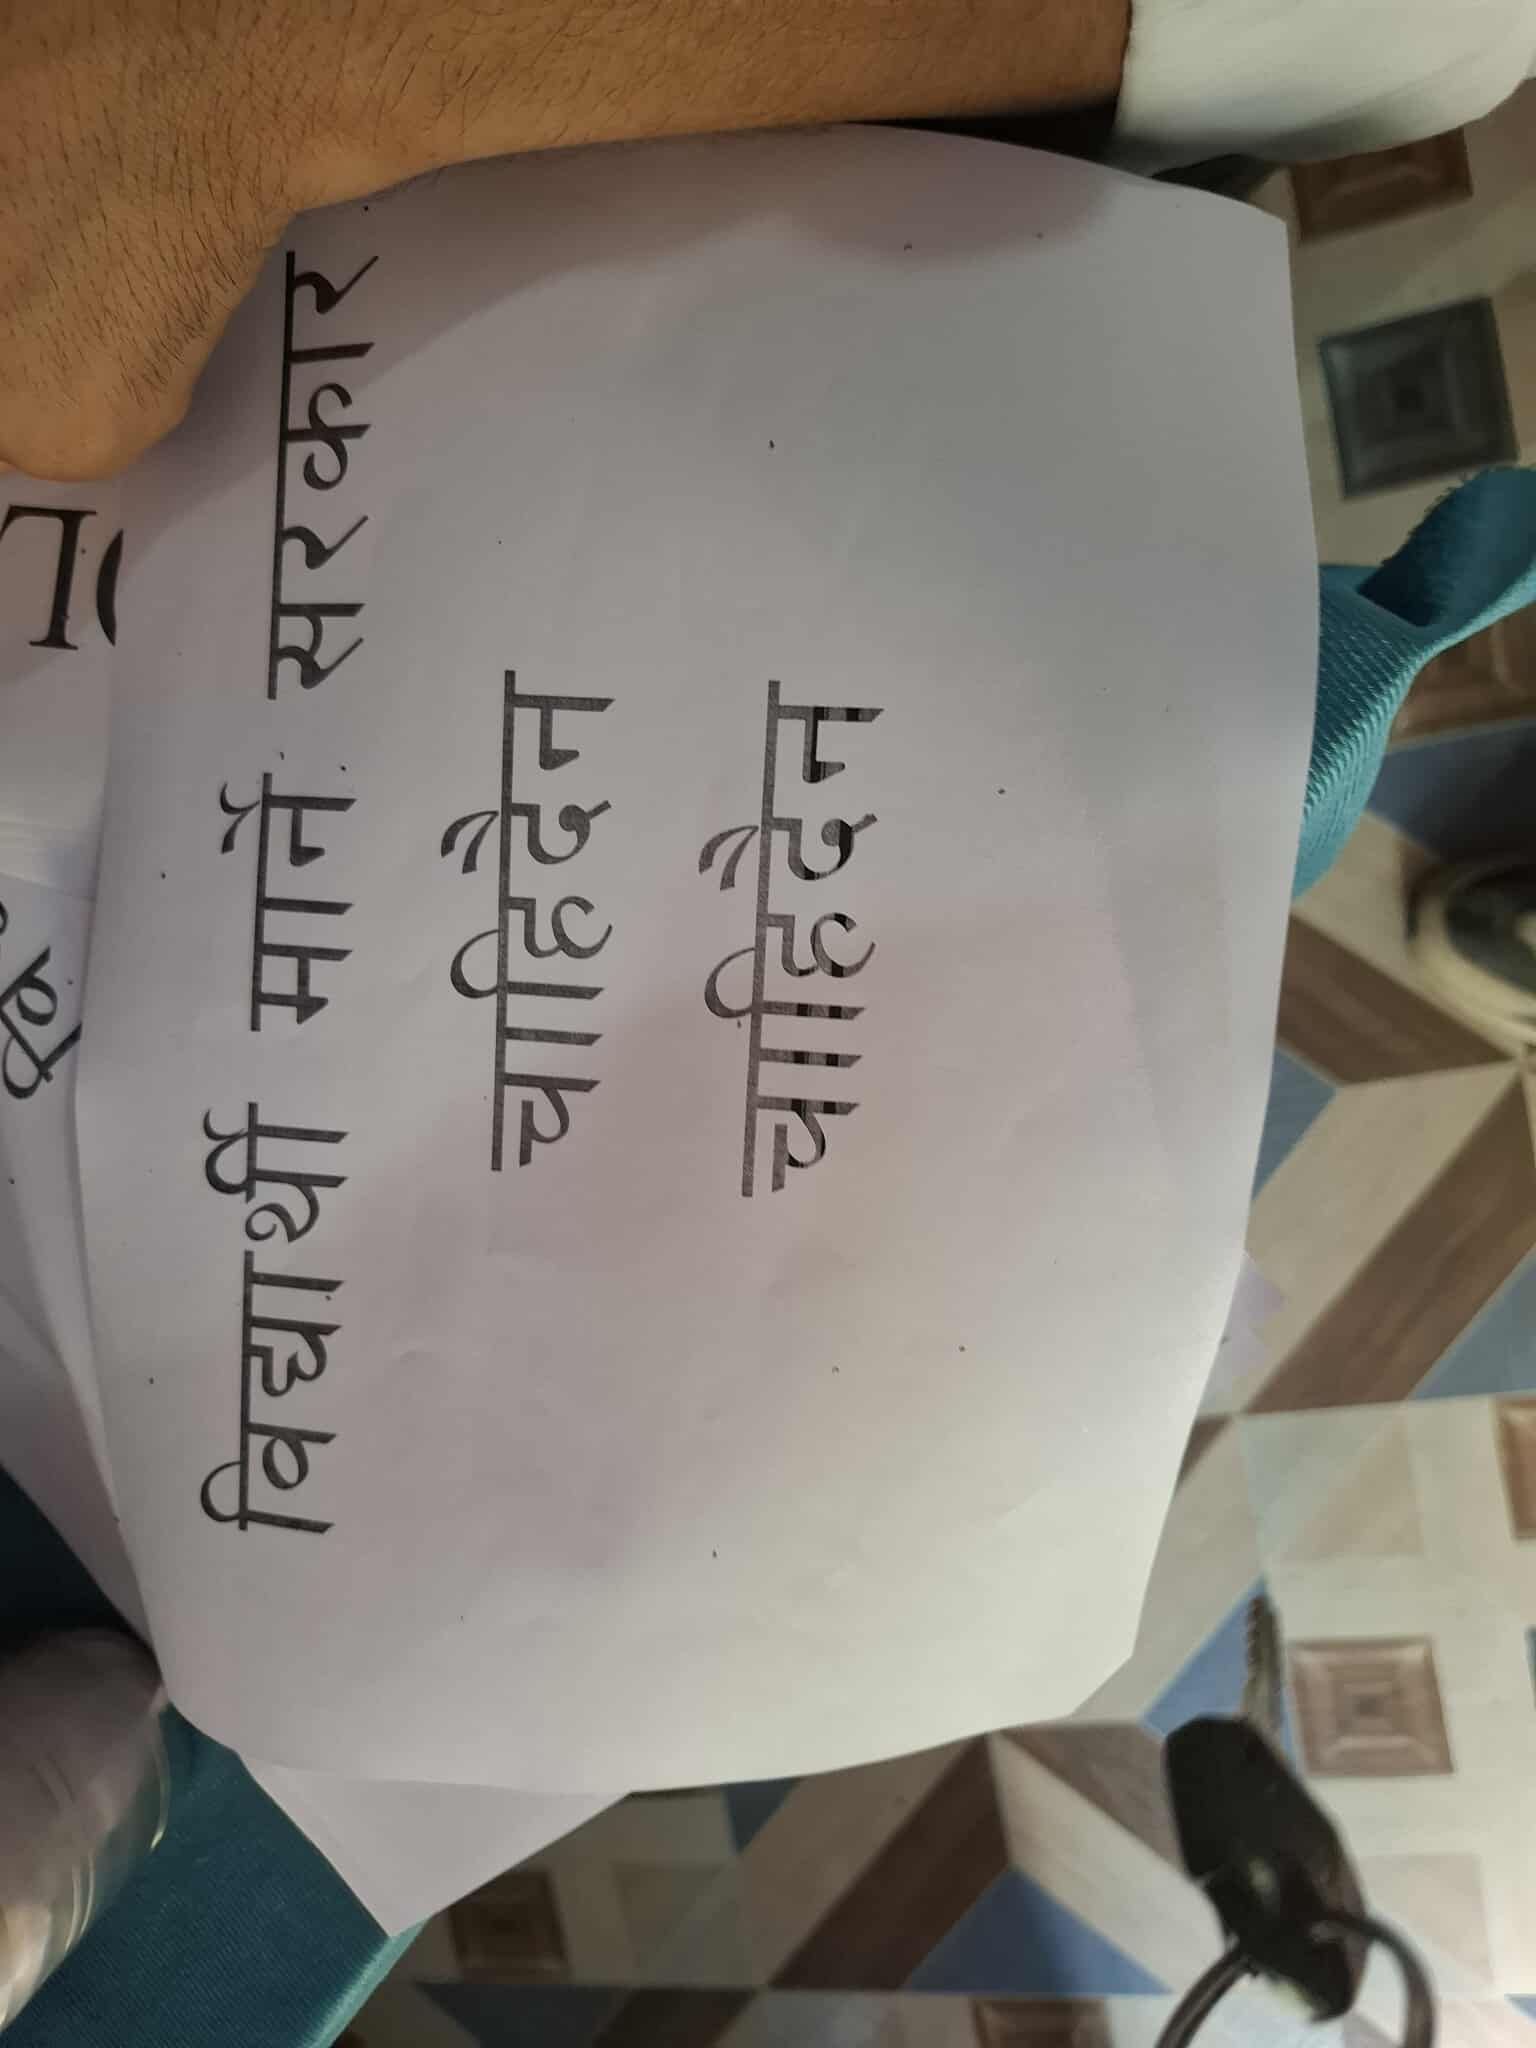 विद्यार्थी मार्ने सरकार
चाहिदैन
चाहिदैन